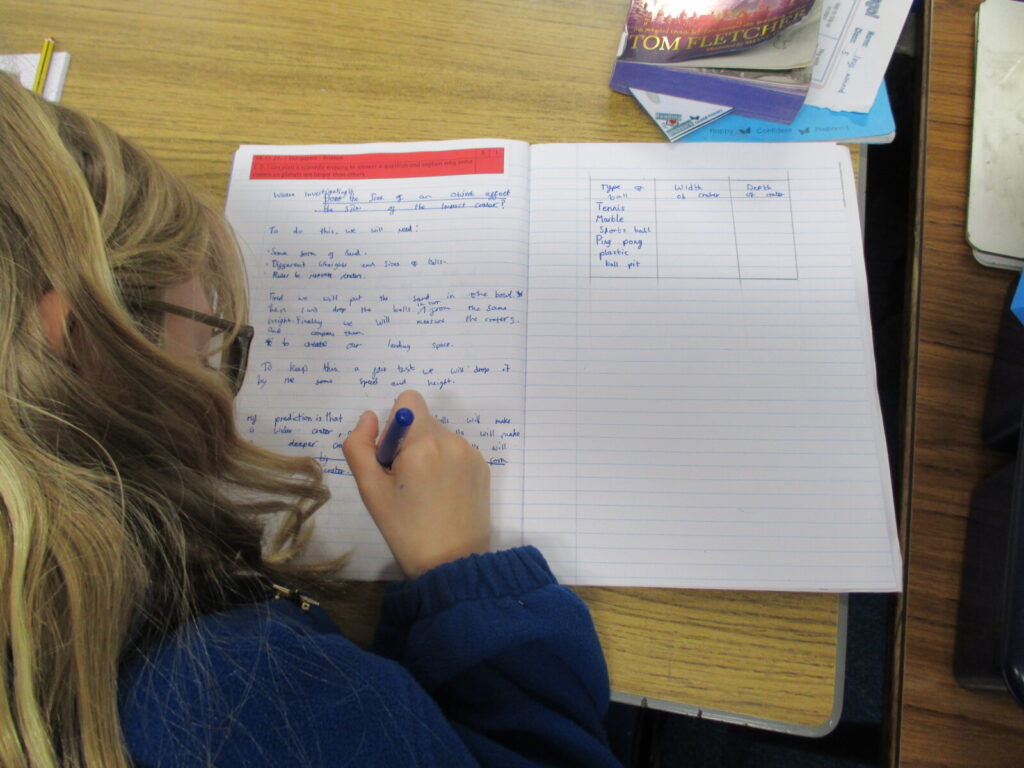 TOM FLETCHER
Name:
Happy Confident Prepared
Science
L.O. I can plan a scientific enquiry to answer a question and explain why some
craters on planets are larger than others.
Does the size of an object affect
the size of the impact crater?
To do this, we will need:
Some form of Sand.
Different and sizes of balls.
Ruler to craters.
we will put the sand in the bowl.
Then I will drop the balls from the same
height. Finally we will measure the craters.
and compare them
to create our landing space.
To keep this a fair test we will drop it
by the same speed and height.
my prediction is that will make
a wider crater, will make
deeper will
crater.
Type of ball
Width of crater
Depth of crater
Tennis
Marble
Sports ball
Ping pong
plastic
ball pit